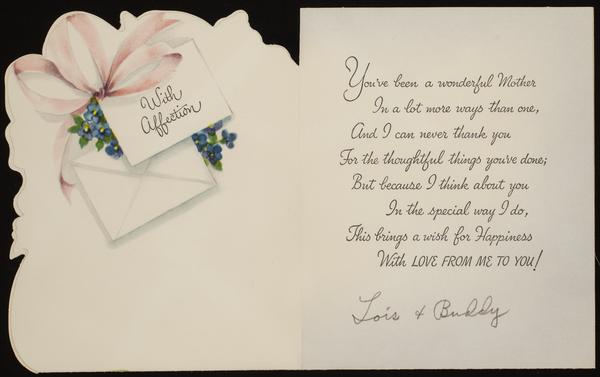 With
Affection
You've been a wonderful Mother
In a lot more ways than one,
And I can never thank you
For the thoughtful things you've done;
But because I think about you
In the special way I do,
This brings a wish for Happiness
With LOVE FROM ME TO YOU!
Lois & Buddy